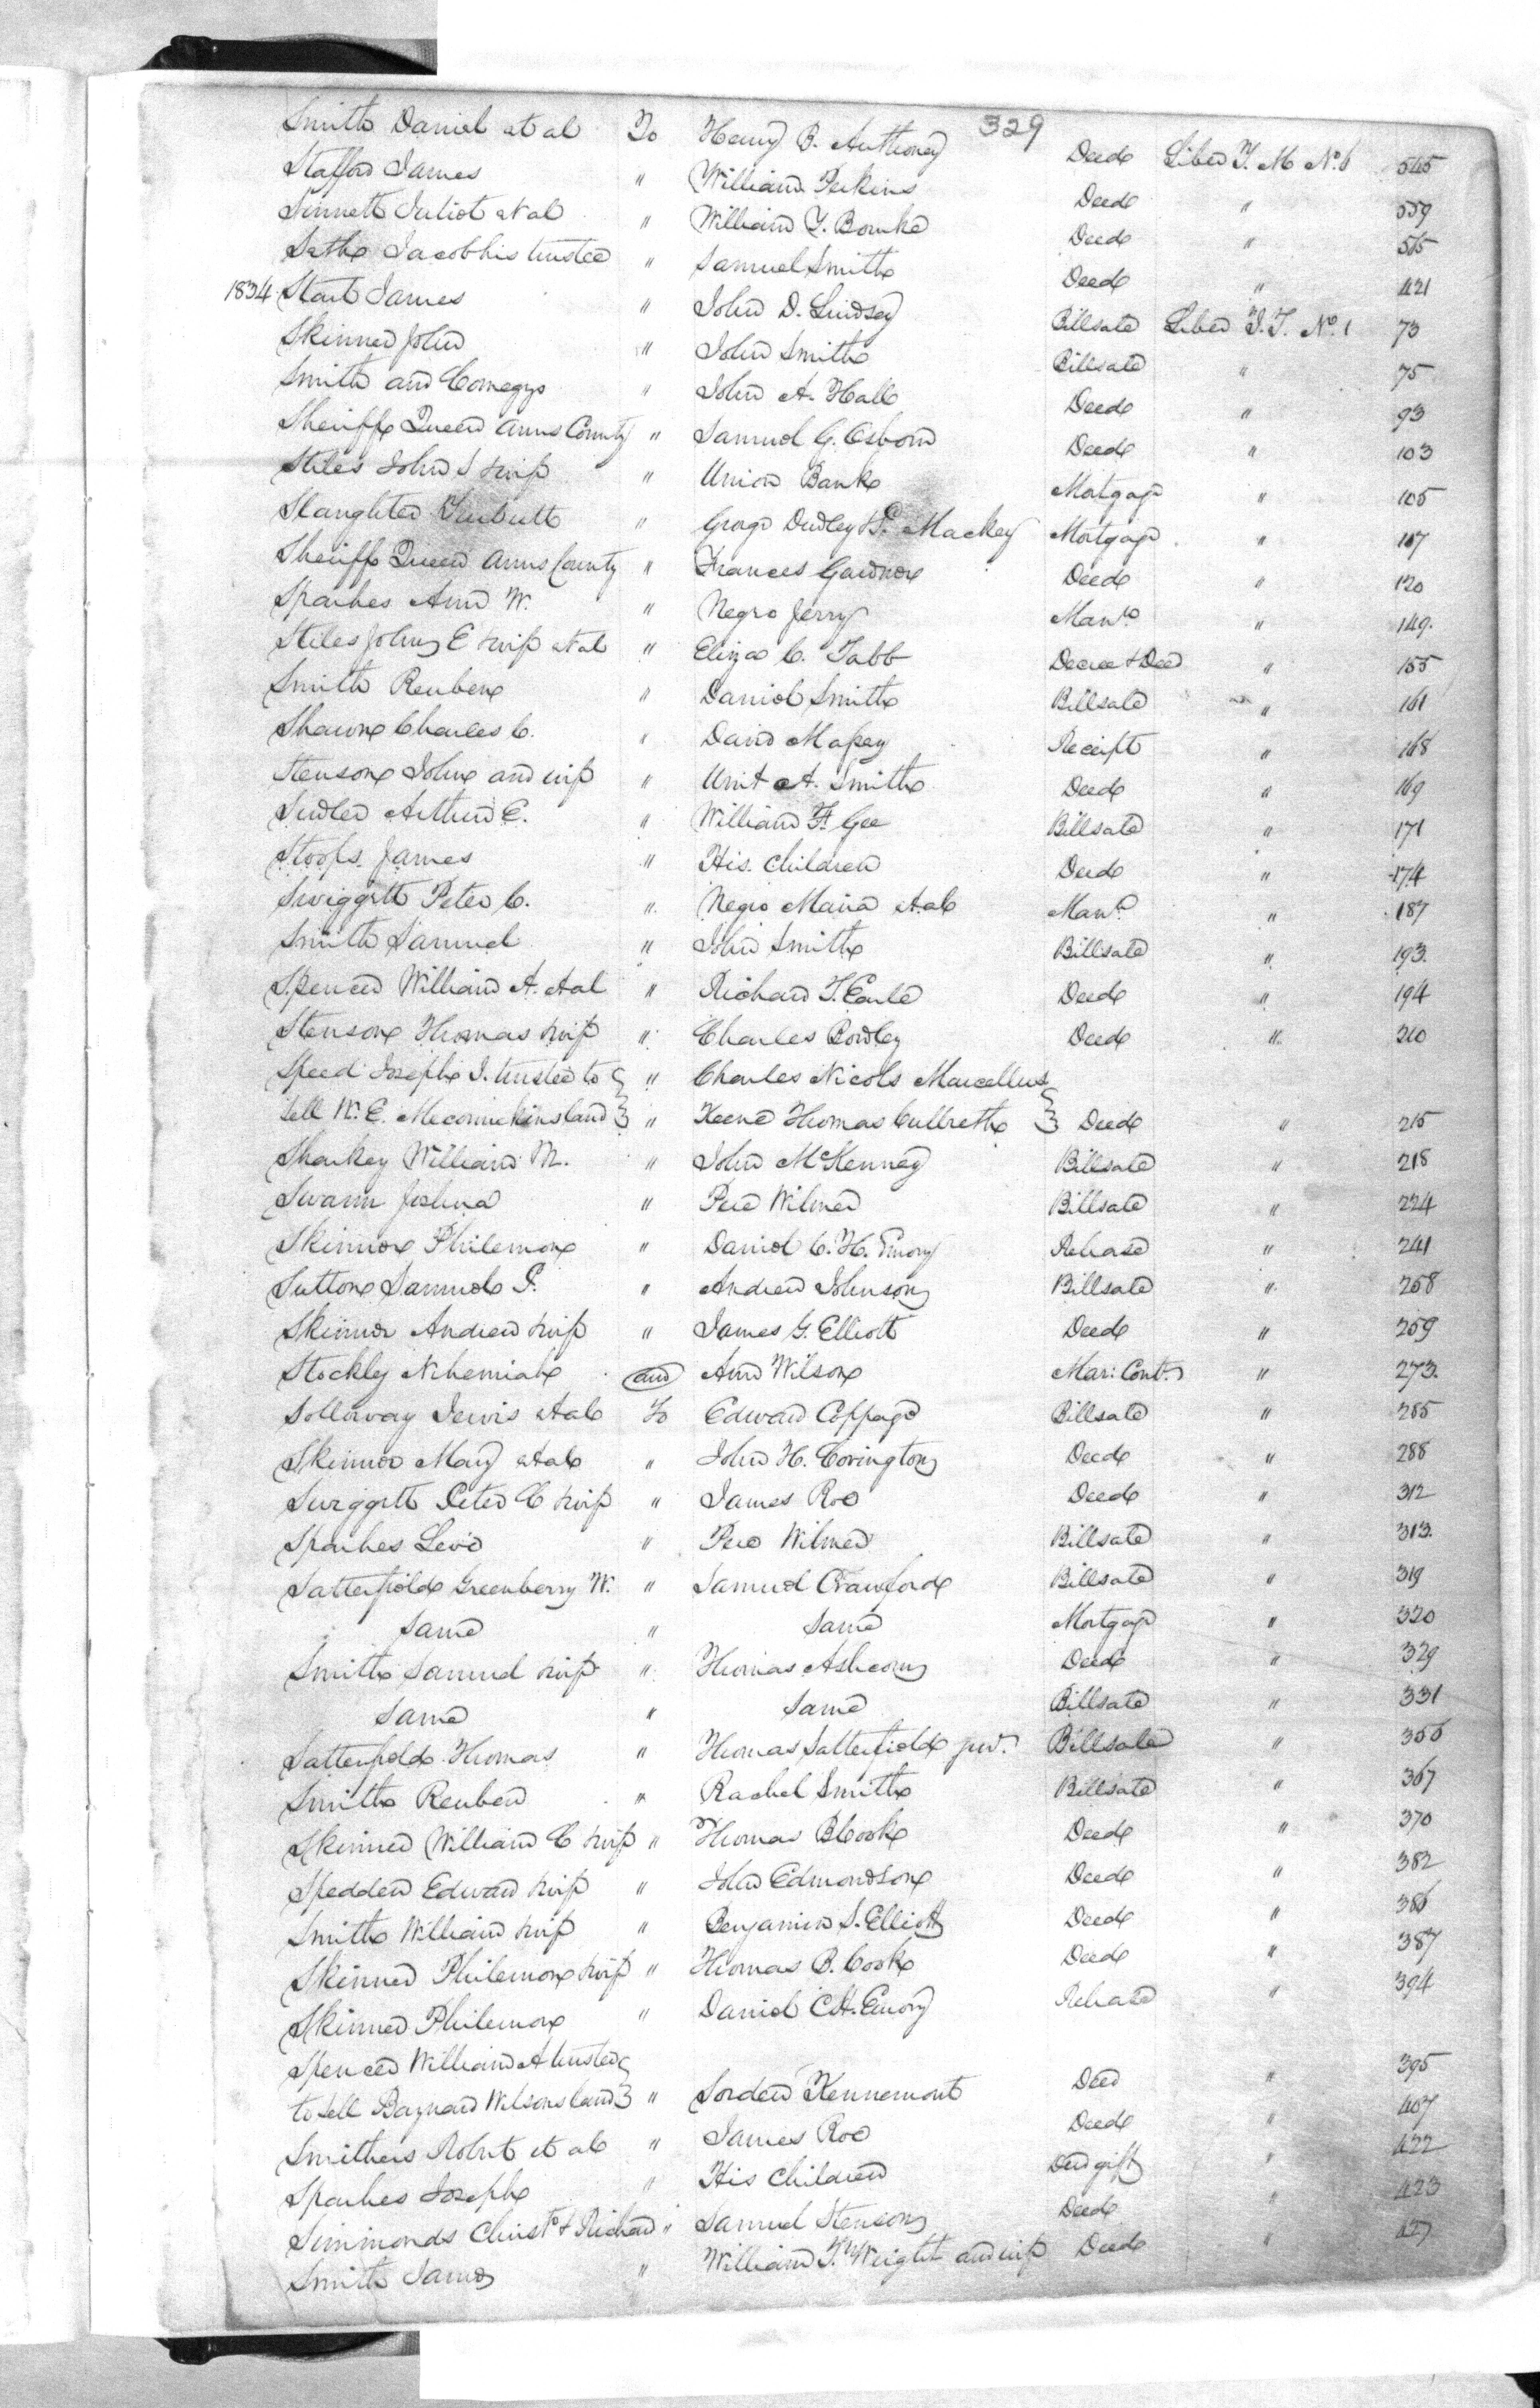 329
Smith Daniel et al To Henry B. Anthoney Deed Liber T. M No. 6 545
Stafford James " William Perkins Deed " 559
Sinnett Juliot et al " William Y. Bourke Deed " 565
Seth Jacob his trustee " Samuel Smith Deed " 421
1834 Start James " John D. Lindsey Billsale Liber J. T. No. 1 73
Skinner John " John Smith Billsale " 75
Smith and Comegys " John A. Hall Deed " 93
Sheriff Queen Anns County " Samuel G. Osborn Deed " 103
Stiles John S & wife " Union Bank Mortgage " 105
Slaughter " George Dudley & P. Mackey Mortgage " 107
Sheriff Queen Anns County " Frances Gardner Deed " 120
Sparkes Ann W. " Negro Jerry Manro " 149.
Stiles John E & wife et al " Eliza C. Tabb Decree & Deed " 155
Smith Reuben " Daniel Smith Billsale " 161
Shawn Charles C. " David Massey Receipt " 168
Stenson John and wife " Unit A. Smith Deed " 169
Sudler Arthur E. " William F. Gee Billsale " 171
Stoops James " His Children Deed " 174
Swiggett Peter C. " Negro Maria et al Manro " 187
Smith Samuel " John Smith Billsale " 193.
Spencer William A. et al " Richard T. Earle Deed " 194
Stenson Thomas & wife " Charles Bowley Deed " 210
Speed Joseph J. trustee to } " Charles Nicols Marcellus }
sell W. E. Meconnekins land } " Keene Thomas Culbreth } Deed " 215
Sharkey William M. " John McKenney Billsale " 218
Swann Joshua " Pere Wilmer Billsale " 224
Skinner Philemon " Daniel C. H. Emory Release " 241
Sutton Samuel P. " Andrew Johnson Billsale " 258
Skinner Andrew & wife " James G. Elliott Deed " 259
Stockly Nehemiah and Ann Wilson Mar: Cont. " 273.
Solloway Lewis et al To Edward Coppage Billsale " 285
Skinner Mary et al " John H. Covington Deed " 288
Swiggett Peter C & wife " James Roe Deed " 312
Sparkes Levi " Pere Wilmer Billsale " 313.
Satterfield Greenberry W. " Samuel Crawford Billsale " 319
Same " Same Mortgage " 320
Smith Samuel & wife " Thomas Ashcom Deed " 329
Same " Same Billsale " 331
Satterfield Thomas " Thomas Satterfield jur. Billsale " 356
Smith Reuben " Rachel Smith Billsale " 367
Skinner William C & wife " Thomas B Cook Deed " 370
Spedden Edward & wife " John Edmondson Deed " 382
Smith William & wife " Benjamin S. Elliott Deed " 386
Skinner Philemon & wife " Thomas B. Cook Deed " 387
Skinner Philemon " Daniel C H. Emory Release " 394
Spencer William A trustee }
to sell Baynard Wilsons land } " Sorden Kennemont Deed " 395
Smithers Robert et al " James Roe Deed " 407
Sparkes Joseph " His Children Deed gift " 422
Simmonds Christr & Richard " Samuel Stenson Deed " 423
Smith James " William T. Wright and wife Deed " 427